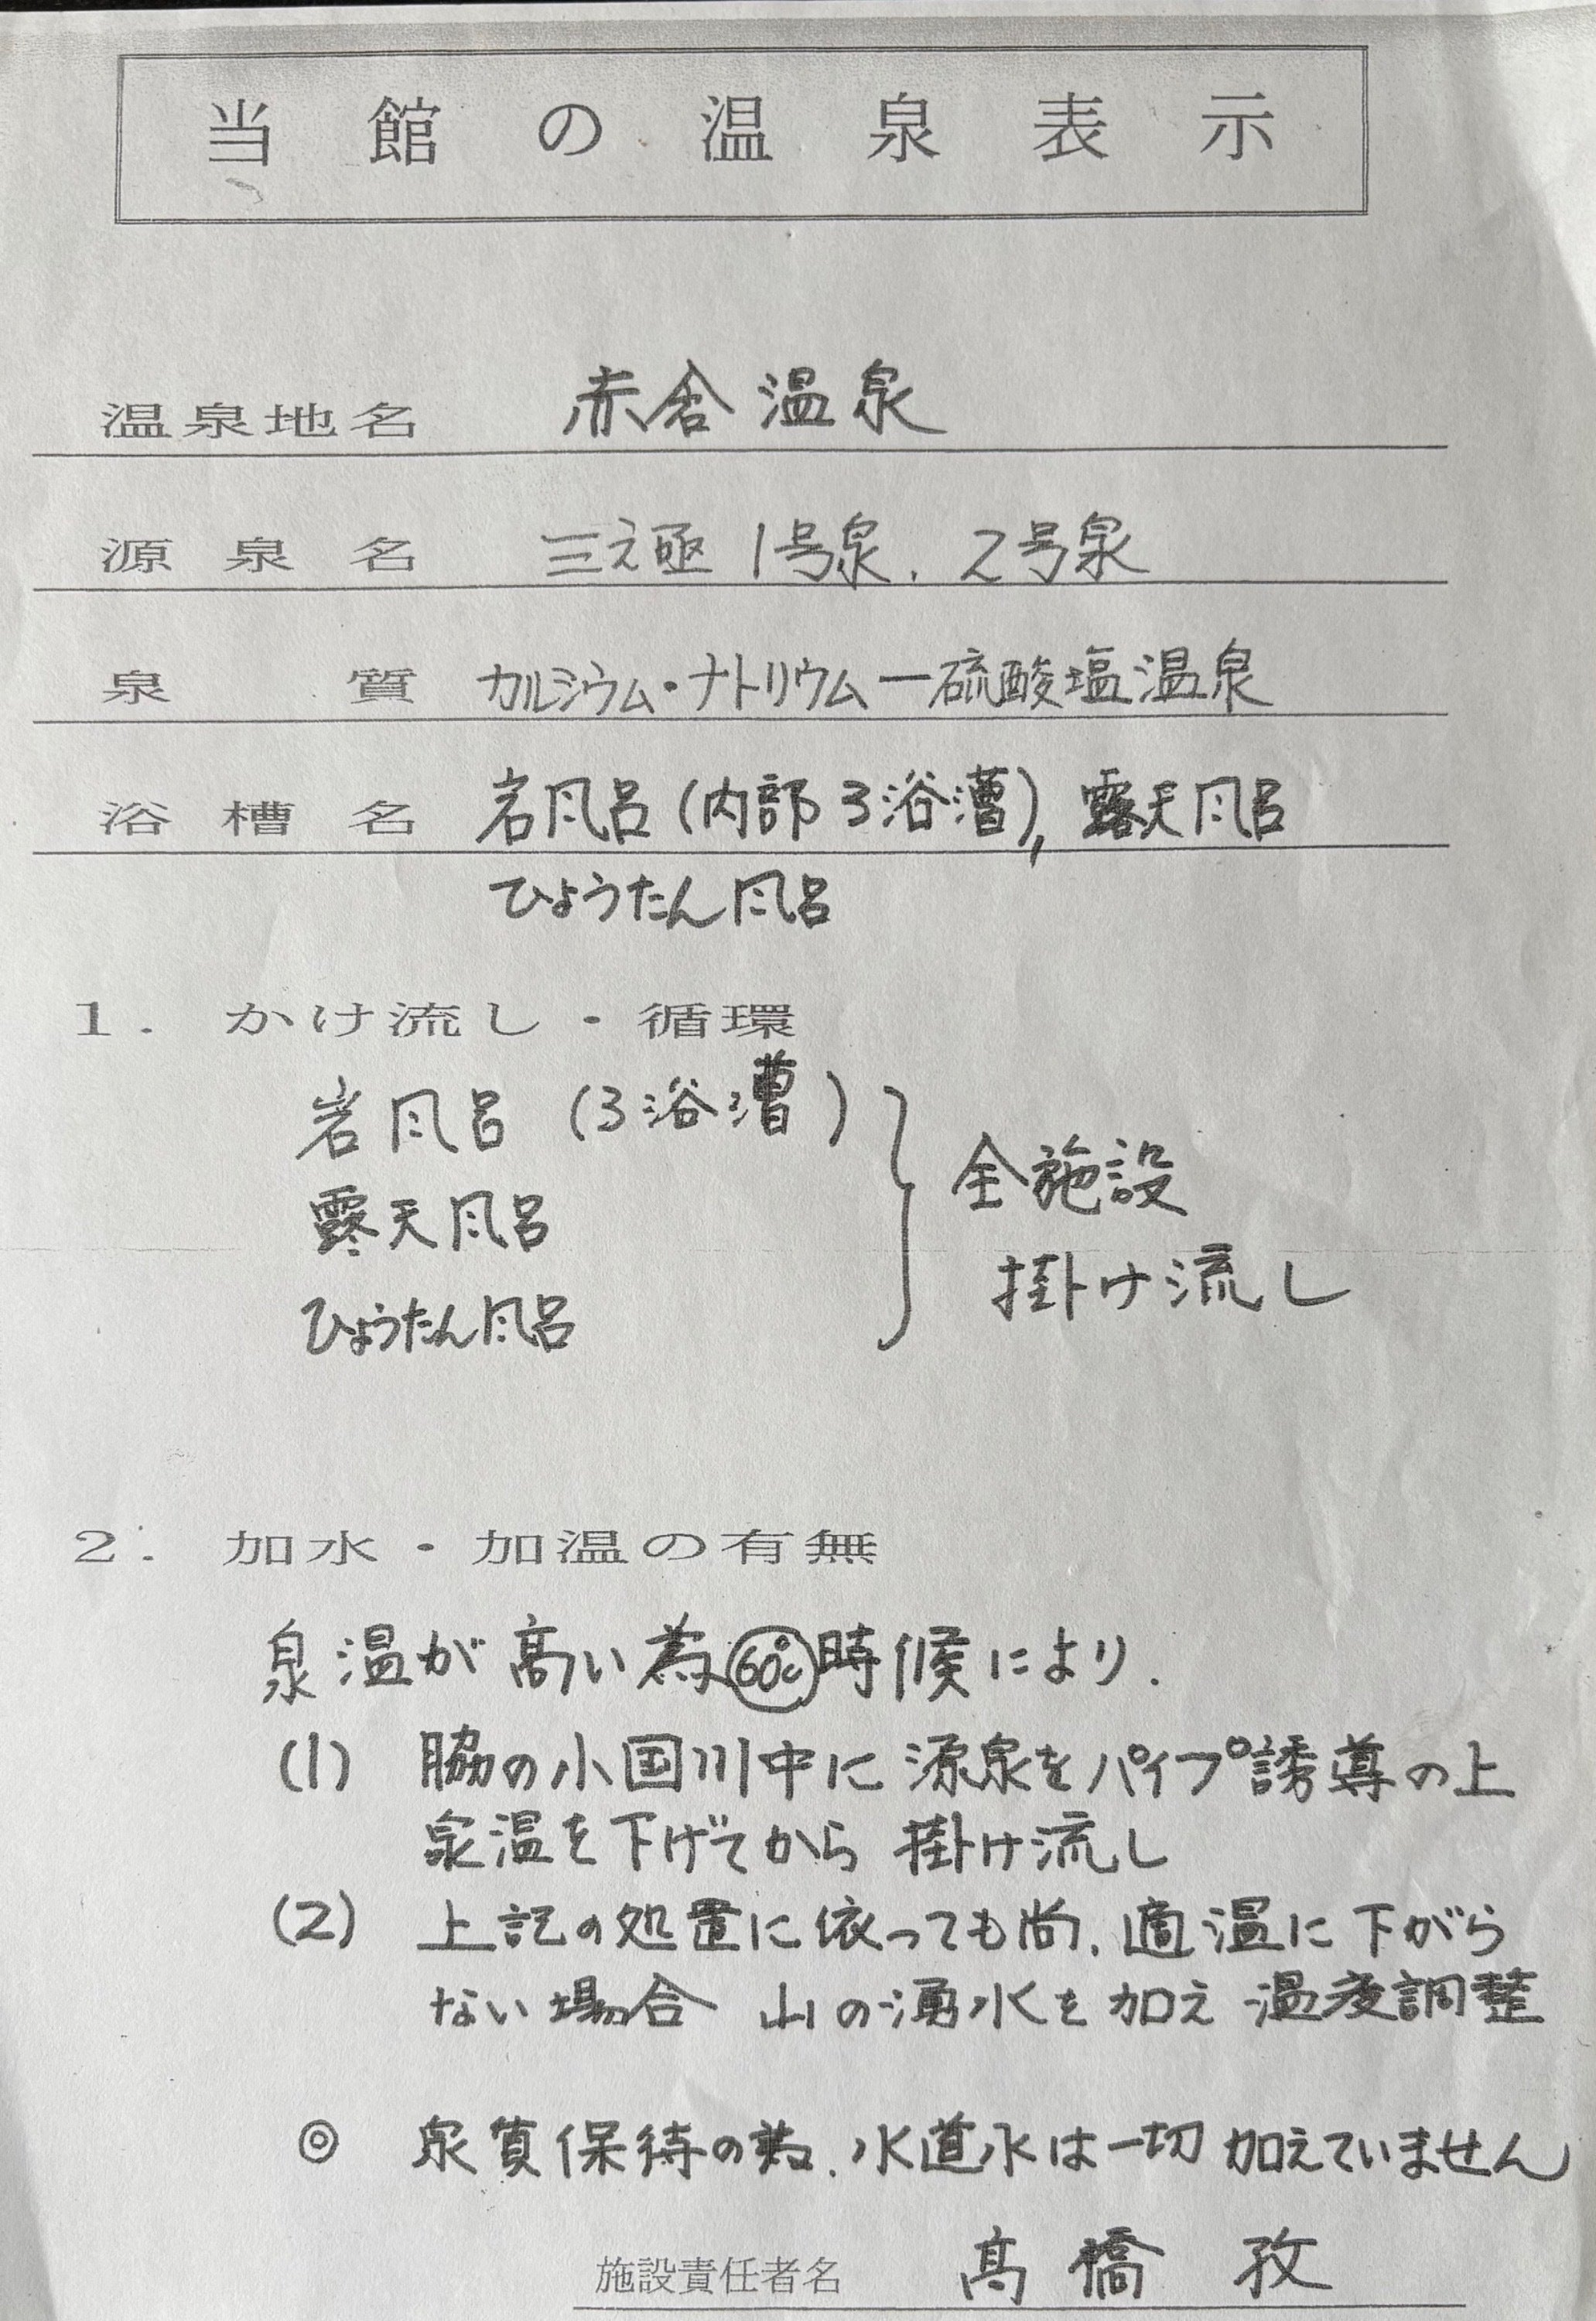 当館の温泉表示
温泉地名 赤倉温泉
源泉名 三之亟 1号泉、2号泉
泉質 カルシウム・ナトリウムー硫酸塩温泉
浴槽名 岩風呂(内部3浴漕),露天風呂
ひょうたん風呂
1. かけ流し・循環
岩風呂(3浴漕)
露天風呂
ひょうたん風呂
全施設
掛け流し
2. 加水・加温の有無
泉温が高い為60℃時候により、
(1) 脇の小国川中に源泉をパイプ誘導の上
泉温を下げてから掛け流し
(2) 上記の処置に依っても尚、適温に下がら
ない場合 山の湧水を加え温度調整
◎ 泉質保持の為、水道水は一切加えていません
施設責任者名 高橋 孜